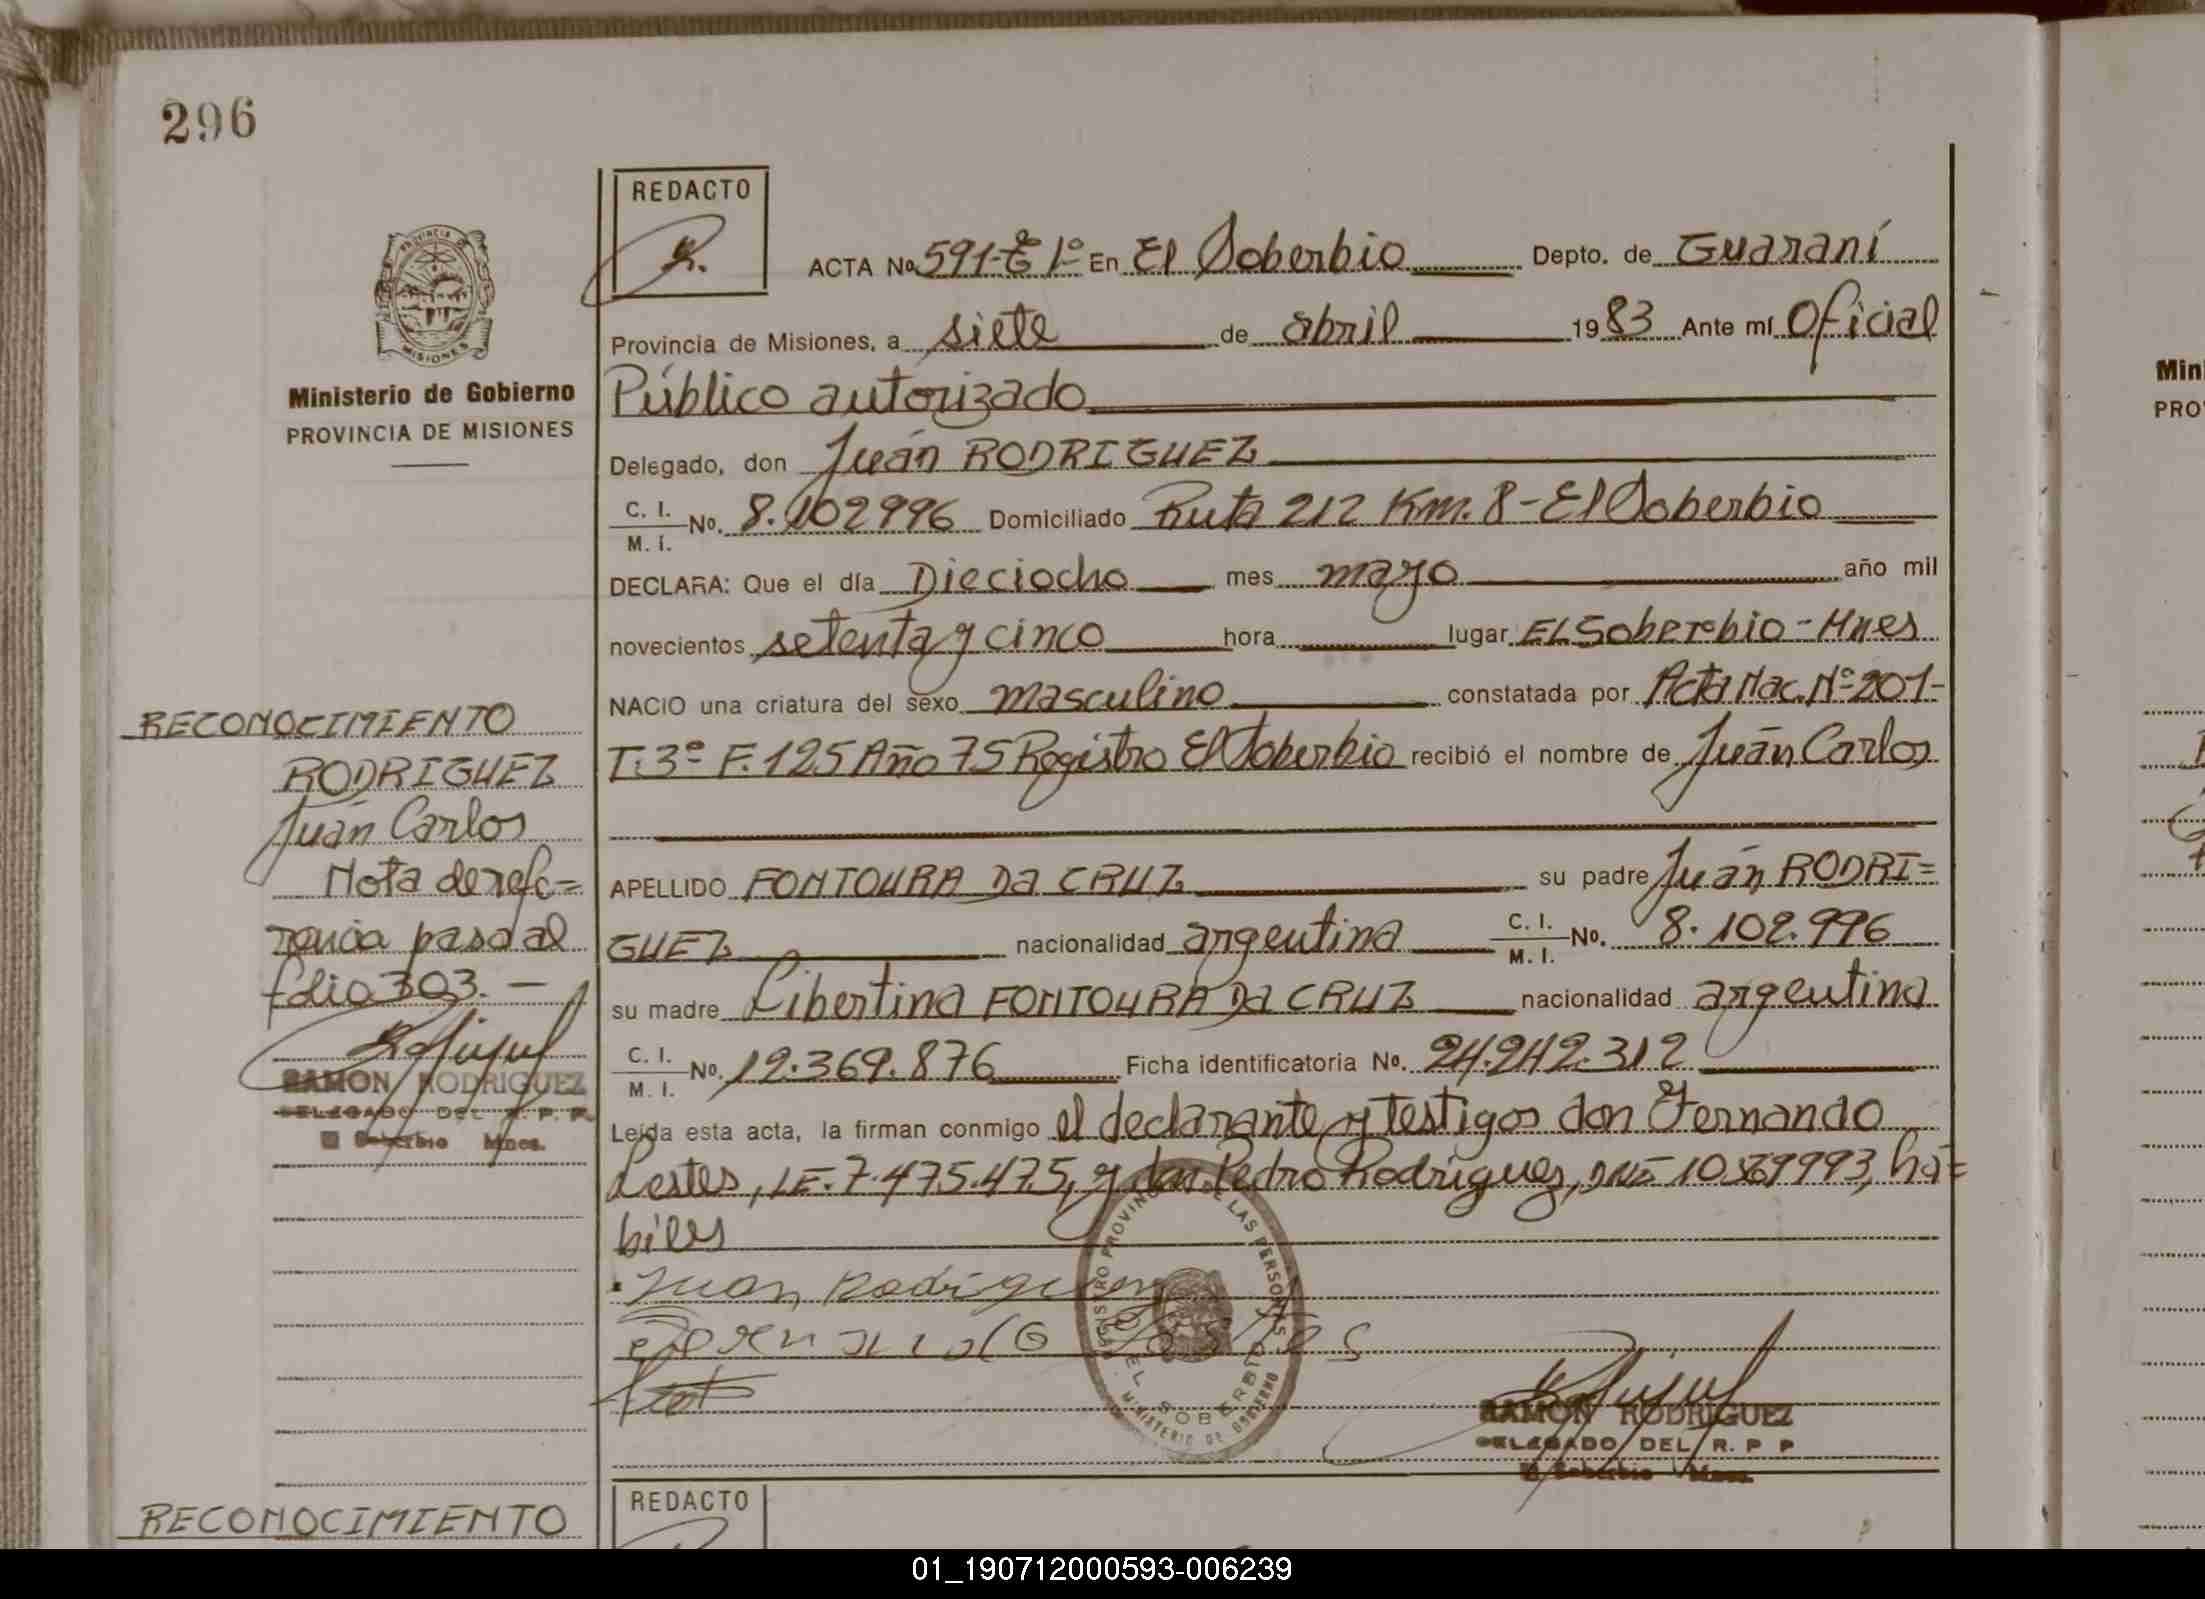 296
REDACTO
ACTA No. 591-Tº 1º En El Soberbio Depto. de Guaraní
Provincia de Misiones, a siete de abril 1983 Ante mí Oficial
Público autorizado
Delegado, don Juán RODRIGUEZ
C. I. / M. I. No. 8.102996 Domiciliado Ruta 212 Km. 8 - El Soberbio
DECLARA: Que el día Dieciocho mes mayo año mil
novecientos setenta y cinco hora lugar EL Soberbio - Mnes
NACIO una criatura del sexo masculino constatada por Acta Nac. Nº 201-
T. 3º F. 125 Año 75 Registro El Soberbio recibió el nombre de Juán Carlos
APELLIDO FONTOURA Da CRUZ su padre Juán RODRI=
GUEZ nacionalidad argentina C. I. / M. I. No. 8.102.996
su madre Libertina FONTOURA Da CRUZ nacionalidad argentina
C. I. / M. I. No. 12.369.876 Ficha identificatoria No. 24.242.312
Leída esta acta, la firman conmigo el declarante y testigos don Fernando
Lestes, LE. 7.475.475, y don Pedro Rodríguez, DNI 10.569993, há=
biles
Juan Rodriguez
REGISTRO PROVINCIAL DE LAS PERSONAS
EL SOBERBIO
MINISTERIO DE GOBIERNO
RAMON RODRIGUEZ
DELEGADO DEL R. P. P.
El Soberbio Mnes.
PROVINCIA DE
MISIONES
Ministerio de Gobierno
PROVINCIA DE MISIONES
RECONOCIMIENTO
RODRIGUEZ
Juán Carlos
Nota de refe=
rencia pasa al
folio 303. -
RAMON RODRIGUEZ
DELEGADO DEL R. P. P.
El Soberbio Mnes.
RECONOCIMIENTO
REDACTO
Min
PRO
01_190712000593-006239